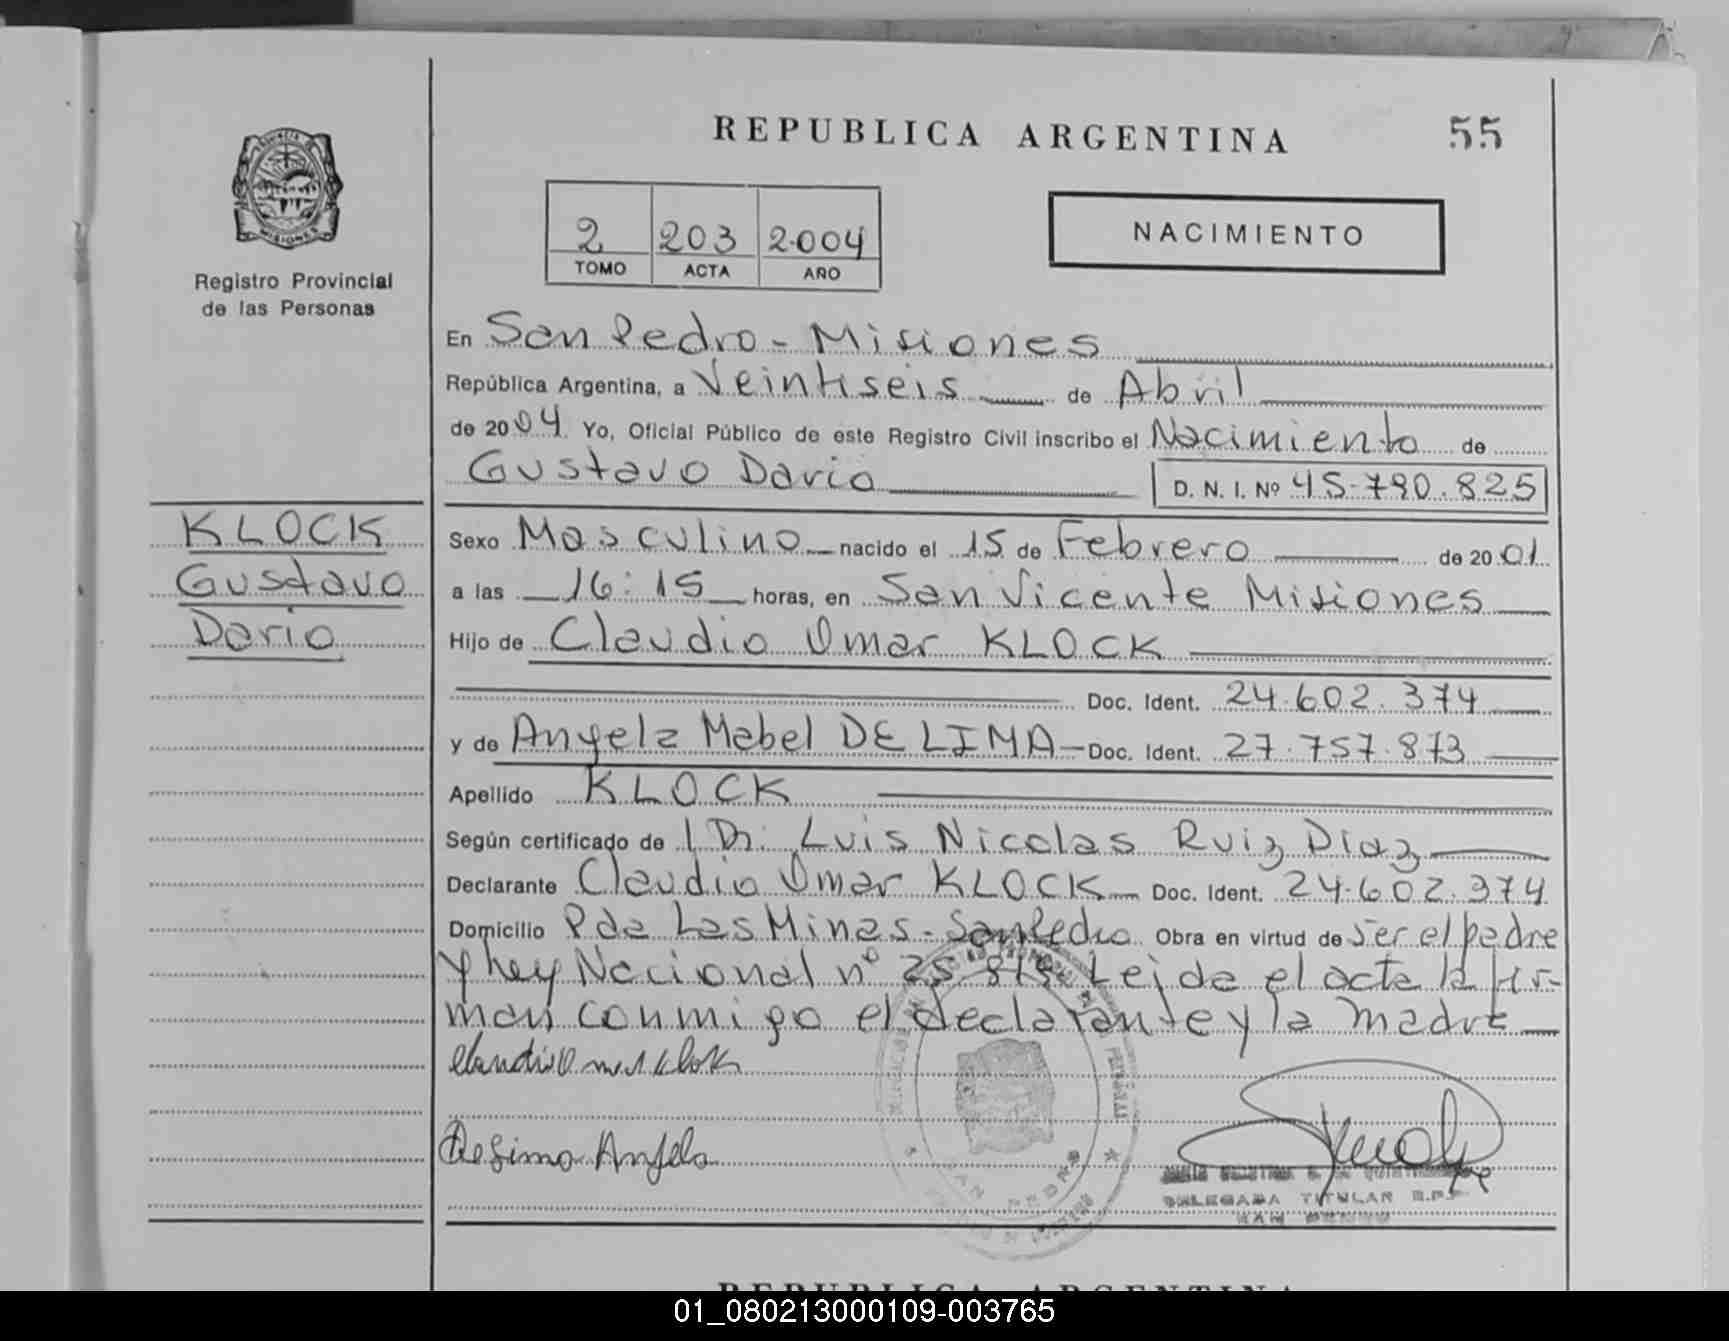 REPUBLICA ARGENTINA
55
MISIONES
Registro Provincial
de las Personas
2 203 2.004
TOMO ACTA AÑO
NACIMIENTO
En San Pedro - Misiones
República Argentina, a Veintiseis de Abril
de 2004 Yo, Oficial Público de este Registro Civil inscribo el Nacimiento de
Gustavo Dario D. N. I. Nº 45.790.825
KLOCK
Gustavo
Dario
Sexo Masculino nacido el 15 de Febrero de 2001
a las 16:15 horas, en San Vicente Misiones
Hijo de Claudio Omar KLOCK
Doc. Ident. 24.602.374
y de Angela Mabel DE LIMA - Doc. Ident. 27.757.873
Apellido KLOCK
Según certificado de Dr. Luis Nicolas Ruiz Diaz
Declarante Claudio Omar KLOCK Doc. Ident. 24.602.374
Domicilio Pda Las Minas - San Pedro Obra en virtud de ser el padre
y Ley Nacional nº 25.819. Leida el acta la fir-
man conmigo el declarante y la madre
Delima Angela
DELEGADA TITULAR R.P.
SAN PEDRO
SAN PEDRO
REPUBLICA ARGENTINA
01_080213000109-003765